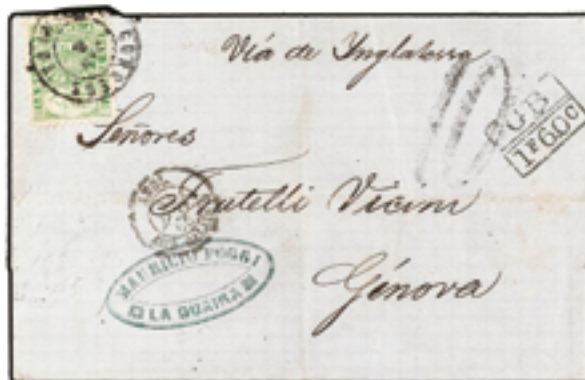 Vía de Inglaterra
GB
1F60C
Señores
Fratelli Vicini
Génova
MAURICIO POGGI
LA GUAIRA